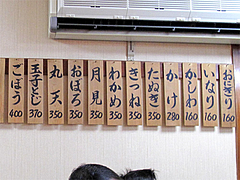 おにぎり 160
いなり 160
かしわ 160
かけ 280
たぬき 350
きつね 350
わかめ 350
月見 350
おぼろ 350
丸天 350
玉子とじ 370
ごぼう 400